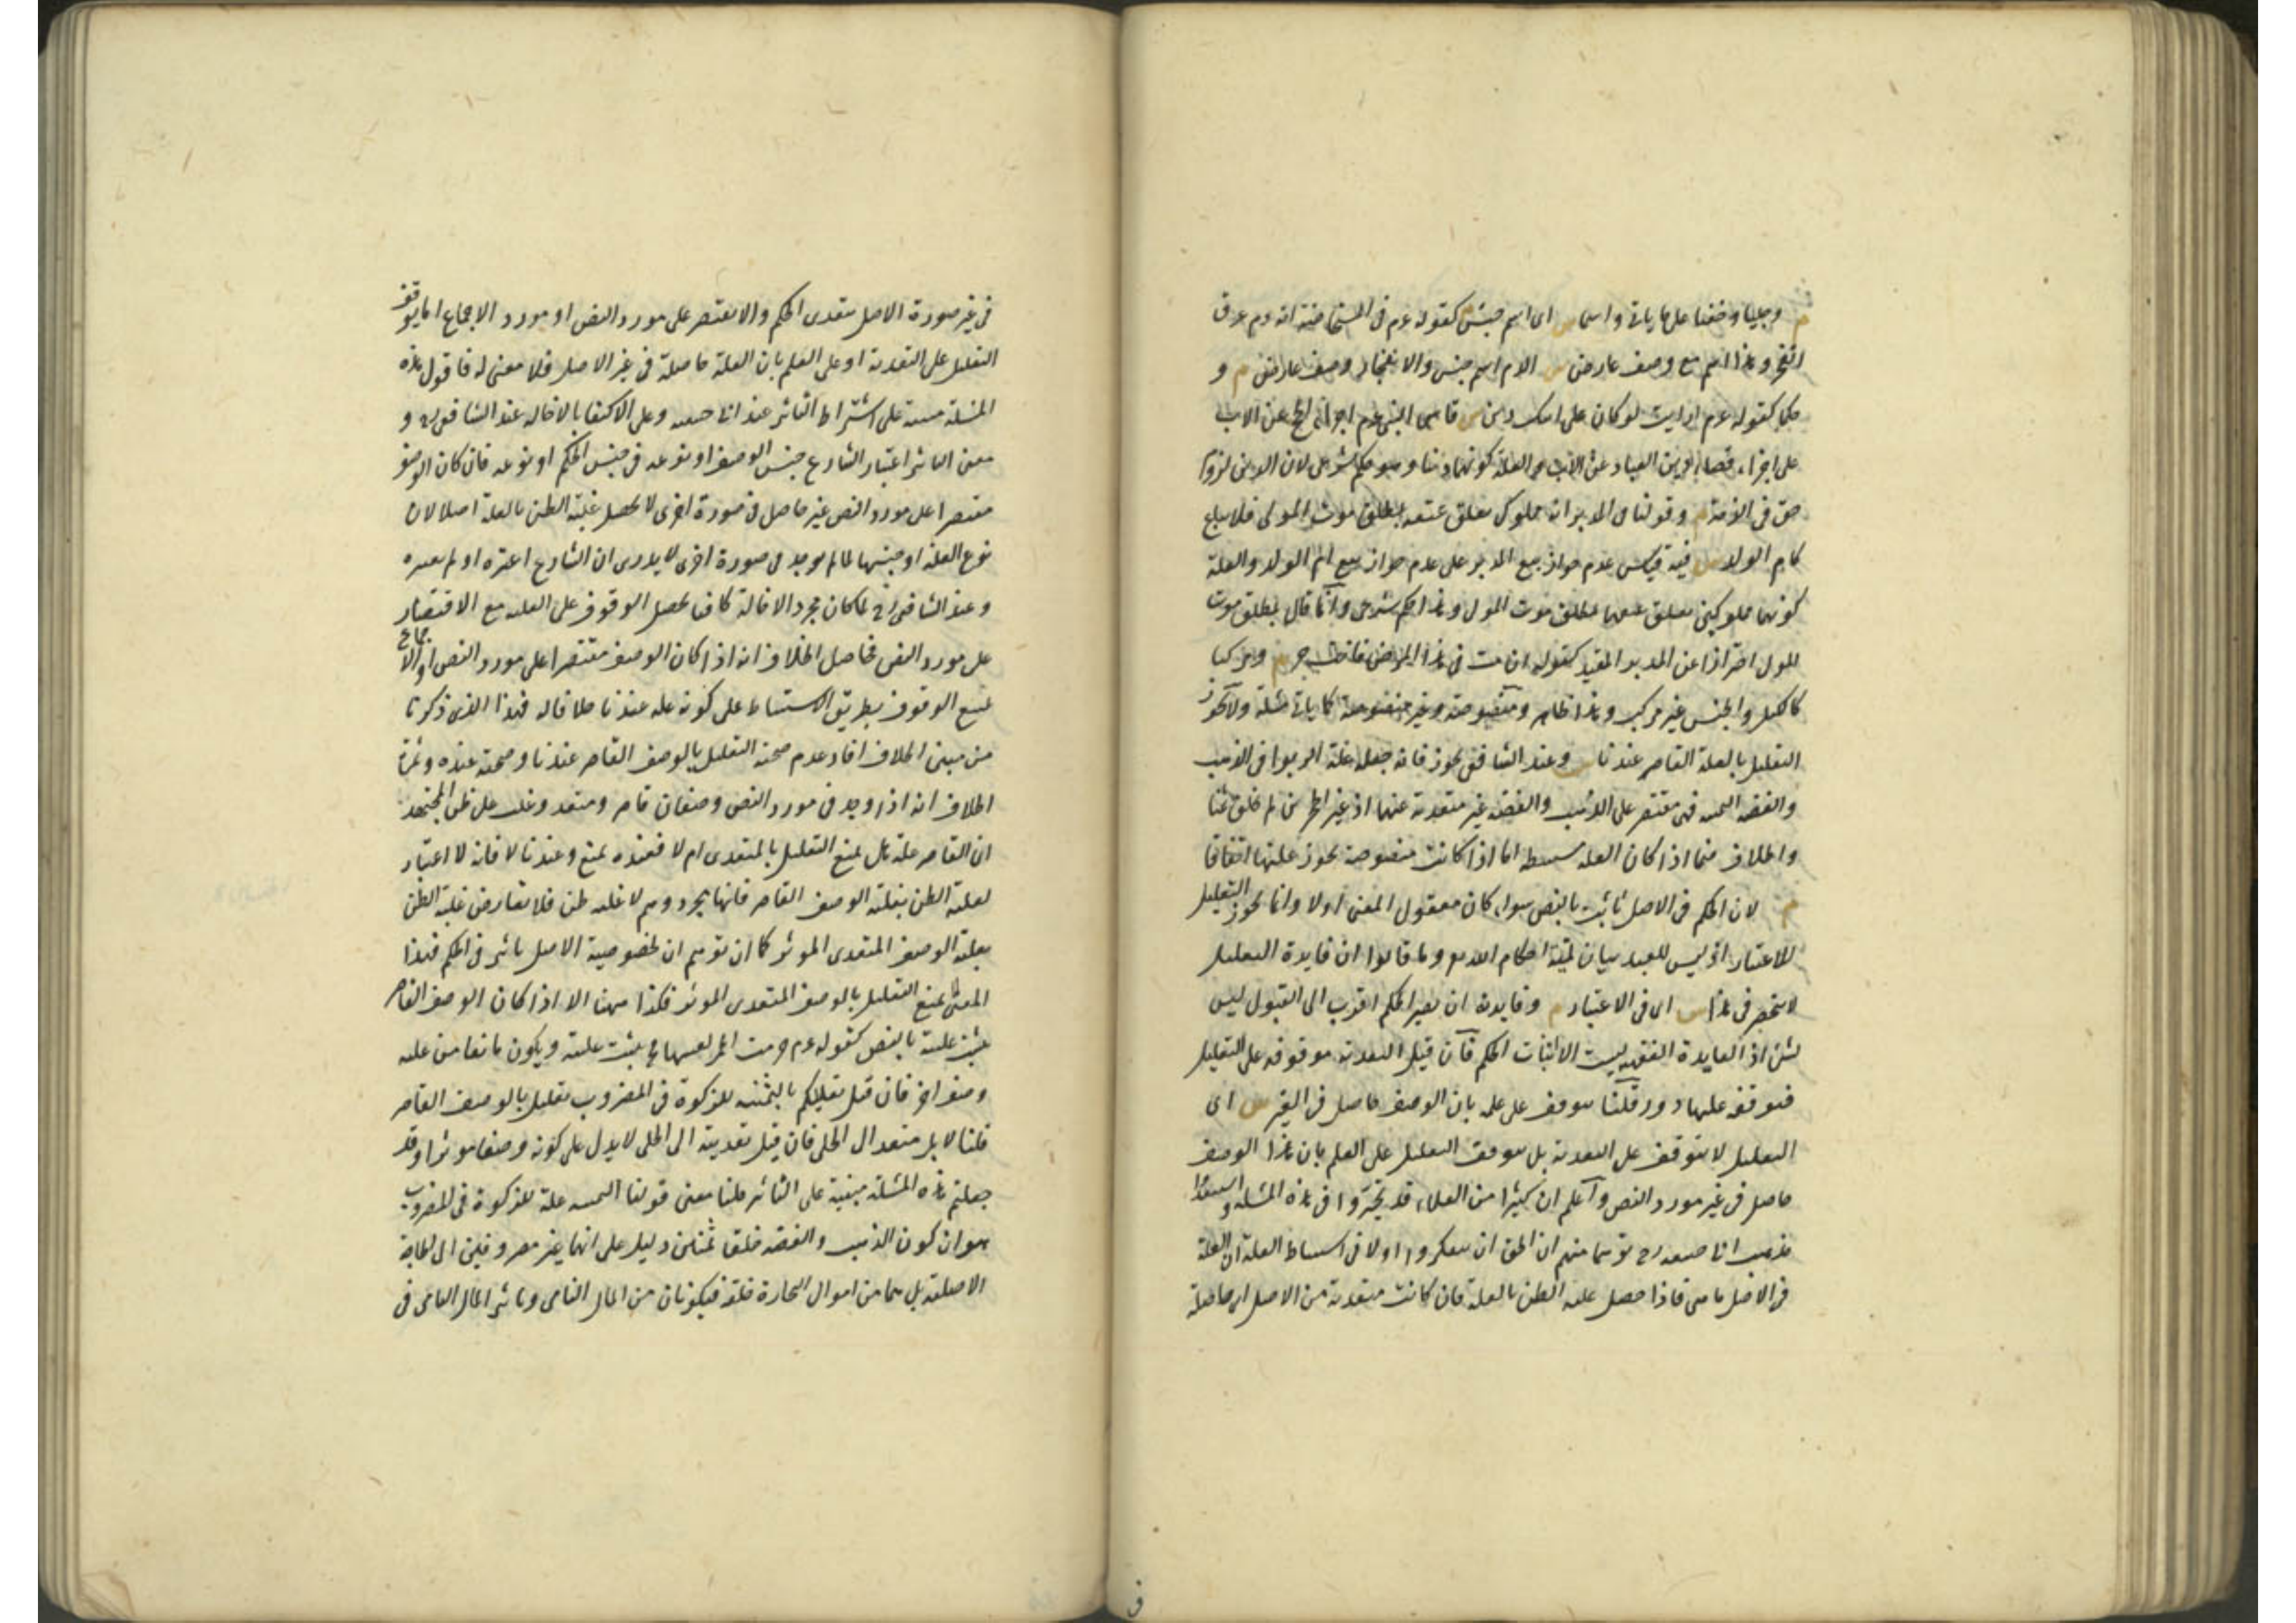 م وجليا وخفيا على ما ياتى واسما س اى اسم جنس كقوله عم فى المستحاضة انه دم عرق
انفجر وهذا اسم مع وصف عارض س الدم اسم جنس والانفجار وصف عارض م و
حكما كقوله عم ارايت لو كان على ابيك دين س قاس النبى عم اجزاء الحج عن الاب
على اجزاء قضاء دين العباد عن الاب والعلة كونهما دينا وهو حكم شرعى لان الدين لزوم
حق فى الذمة م وقولنا فى المدبر انه مملوك تعلق عتقه بمطلق موت المولى فلا يباع
كام الولد س فيه قيس عدم جواز بيع المدبر على عدم جواز بيع ام الولد والعلة
كونهما مملوكين تعلق عتقهما بمطلق موت المولى وهذا حكم شرعى وانما قال بمطلق موت
المولى احترازا عن المدبر المقيد كقوله ان مت فى هذا المرض فانت حر م ومركبا
كالكيل والجنس غير مركب وهذا ظاهر ومنصوصة وغير منصوصة كما ياتى مسئلة ولا يجوز
التعليل بالعلة القاصرة عندنا س وعند الشافعى يجوز فانه جعل علة الربوا فى الذهب
والفضة الثمنية فهى مقتصرة على الذهب والفضة غير متعدية عنهما اذ غير الحجرين لم يخلق ثمنا
والخلاف فيما اذا كان العلة مستنبطة اما اذا كانت منصوصة يجوز عليتها اتفاقا
م لان الحكم فى الاصل ثابت بالنص سواء كان معقول المعنى اولا وانما يجوز التعليل
للاعتبار اذ ليس للعبد بيان لمية احكام الله تع وما قالوا ان فايدة التعليل
لا تنحصر فى هذا س اى فى الاعتبار م وفايدته ان يصير الحكم اقرب الى القبول ليس
بشئ اذ الفايدة الفقهية ليست الا اثبات الحكم فان قيل التعدية موقوفة على التعليل
فتوقفه عليها دور قلنا يتوقف على علمه بان الوصف حاصل فى الغير س اى
التعليل لا يتوقف على التعدية بل يتوقف التعليل على العلم بان هذا الوصف
حاصل فى غير مورد النص واعلم ان كثيرا من العلماء قد تحيروا فى هذه المسئلة واستبعدوا
مذهب ابى حنيفة رح توهما منهم ان الحق ان يتفكروا اولا فى استنباط العلة ان العلة
فى الاصل ما هى فاذا حصل غلبة الظن بالعلة فان كانت متعدية من الاصل اى حاصلة
فى غير صورة الاصل يتعدى الحكم والا يقتصر على مورد النص او مورد الاجماع اما توقف
التعليل على التعدية او على العلم بان العلة حاصلة فى غير الاصل فلا معنى له فاقول هذه
المسئلة مبنية على اشتراط التاثير عند ابى حنيفة وعلى الاكتفا بالاخالة عند الشافعى رح و
معنى التاثير اعتبار الشارع جنس الوصف او نوعه فى جنس الحكم او نوعه فان كان الوصف
مقتصرا على مورد النص غير حاصل فى صورة اخرى لا يحصل غلبة الظن بالعلة اصلا لان
نوع العلة او جنسها لما لم يوجد فى صورة اخرى لا يدرى ان الشارع اعتبره او لم يعتبره
وعند الشافعى رح لما كان مجرد الاخالة كافيا يحصل الوقوف على العلة مع الاقتصار
على مورد النص فحاصل الخلاف انه اذا كان الوصف مقتصرا على مورد النص او الاجماع
يمتنع الوقوف بطريق الاستنباط على كونه علة عندنا خلافا له فهذا الذى ذكرنا
من مبنى الخلاف افاد عدم صحة التعليل بالوصف القاصر عندنا وصحته عنده وثمرة
الخلاف انه اذا وجد فى مورد النص وصفان قاصر ومتعد وغلب على ظن المجتهد
ان القاصر علة هل يمنع التعليل بالمتعدى ام لا فعنده يمنع وعندنا لا فانه لا اعتبار
لغلبة الظن بغلبة الوصف القاصر فانها مجرد وهم لا غلبة ظن فلا تعارض غلبة الظن
بعلية الوصف المتعدى الموثر كما ان توهم ان لخصوصية الاصل تاثير فى الحكم فهذا
المعنى لا يمنع التعليل بالوصف المتعدى الموثر فكذا ههنا الا اذا كان الوصف القاصر
يثبت عليته بالنص كقوله عم حرمت الخمر لعينها فح يثبت عليته ويكون مانعا من علية
وصف اخر فان قيل تعليلكم بالثمنية للزكوة فى المضروب تعليل بالوصف القاصر
قلنا لا بل متعد الى الحلى فان قيل تعديته الى الحلى لا يدل على كونه وصفا موثرا وقد
جعلتم هذه المسئلة مبنية على التاثير قلنا معنى قولنا الثمنية علة للزكوة فى المضروب
هو ان كون الذهب والفضة خلقا ثمنين دليل على انهما غير مصروفين الى الحاجة
الاصلية بل هما من اموال التجارة خلقة فيكونان من المال النامى وتاثير المال النامى فى